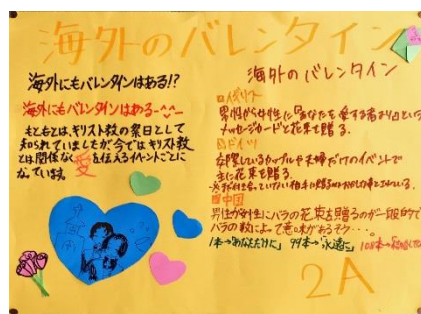 海外のバレンタイン
海外にもバレンタインはある!?
海外にもバレンタインはあるー^_^
もともとは、キリスト教の祭日として
知られていましたが今ではキリスト教
とは関係なく愛を伝えるイベントごとに
なっています。
海外のバレンタイン
イギリス
男性から女性に「あなたを愛する者より」という
メッセージカードと花束を贈る。
ドイツ
交際しているカップルや夫婦だけのイベントで
主に花束を贈る。
中国
男性が女性にバラの花束を贈るのが一般的で
バラの数によって意味があるそう・・・。
1本→「あなただけ」 99本→「永遠に」 108本→
2A